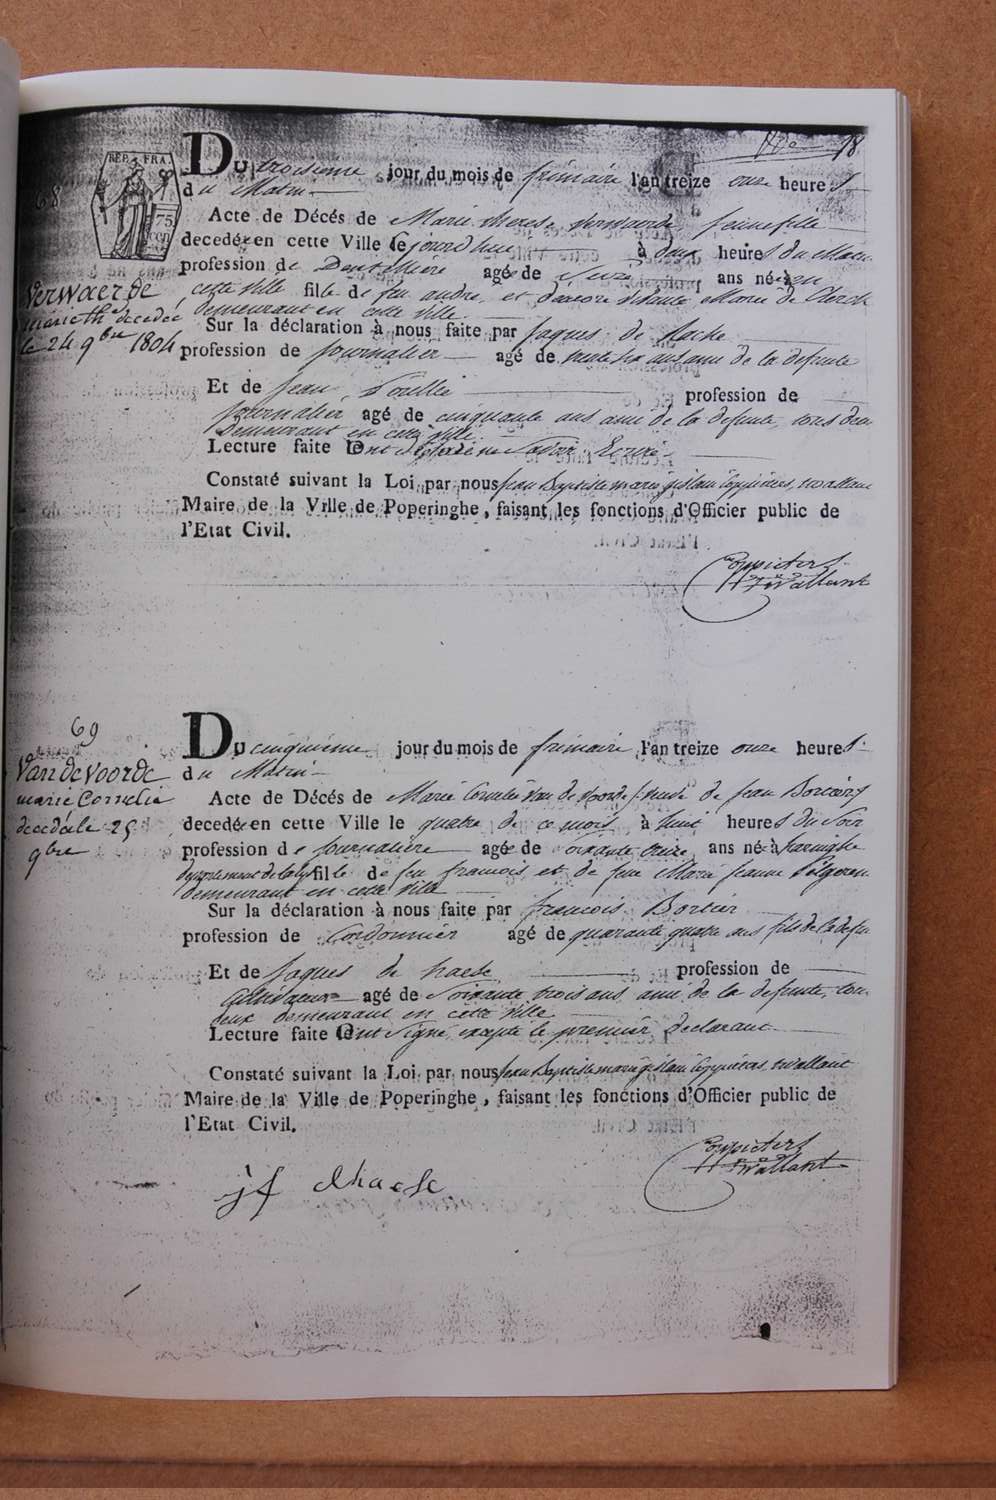 18
REP. FRA.
75
CEN
68
Du troisieme jour du mois de frimaire l'an treize onze heures
du Matin
Acte de Décés de Marie therese Verwaerde, jeune fille
decedée en cette Ville le jourdhui à deux heures du Matin
profession de Dentelliere agée de ans née en
cette ville fille de feu andre, et Marie de Clerck
demeurant en cette ville.
Verwaerde
marie the decedée
le 24 9bre 1804
Sur la déclaration à nous faite par Jaques de
profession de Journalier agé de trente six ans ami de la defunte
Et de Jean profession de
Journalier agé de cinquante ans ami de la defunte, tous deux
demeurant en cette ville
Lecture faite ont déclaré ne Savoir Ecrire
Constaté suivant la Loi par nous Jean Baptiste marie gislain Coppieters, trvallant
Maire de la Ville de Poperinghe, faisant les fonctions d'Officier public de
l'Etat Civil.
Coppieters
Trvallant
69
Van de Voorde
marie Cornelie
decedée le 25
9bre
Du cinquieme jour du mois de frimaire l'an treize onze heures
du Matin
Acte de Décés de Marie Cornelie Van de Voorde veuve de Jean
decedée en cette Ville le quatre de ce mois à huit heures du Soir
profession de Journaliere agée de Soixante onze ans née à haringhe
departement de la lys fille de feu francois, et de feue Marie Jeanne
demeurant en cette ville
Sur la déclaration à nous faite par francois Bortier
profession de Cordonnier agé de quarante quatre ans fils de la defunte
Et de Jaques de haese profession de
Cultivateur agé de Soixante trois ans, ami de la defunte, tous
deux demeurant en cette ville
Lecture faite ont Signé, excepte le premier Declarant
Constaté suivant la Loi par nous Jean Baptiste marie gislain Coppieters, trvallant
Maire de la Ville de Poperinghe, faisant les fonctions d'Officier public de
l'Etat Civil.
Coppieters
Trvallant
jf dhaese